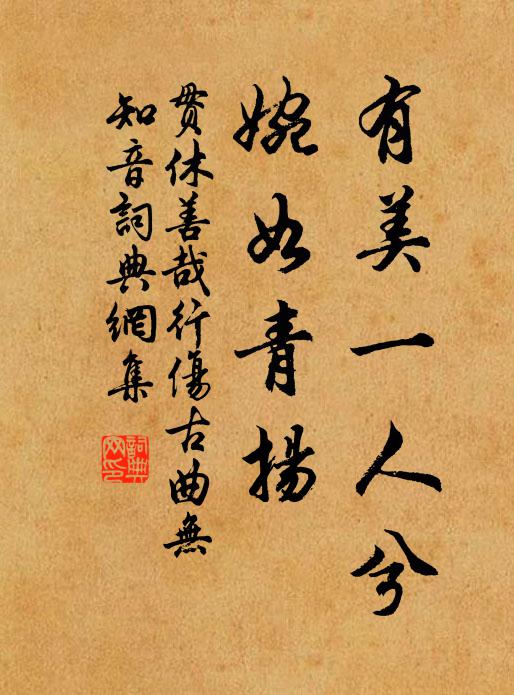 有美一人兮
婉如青揚
貫休善哉行傷古曲無
知音詞典網集
詞典
网印